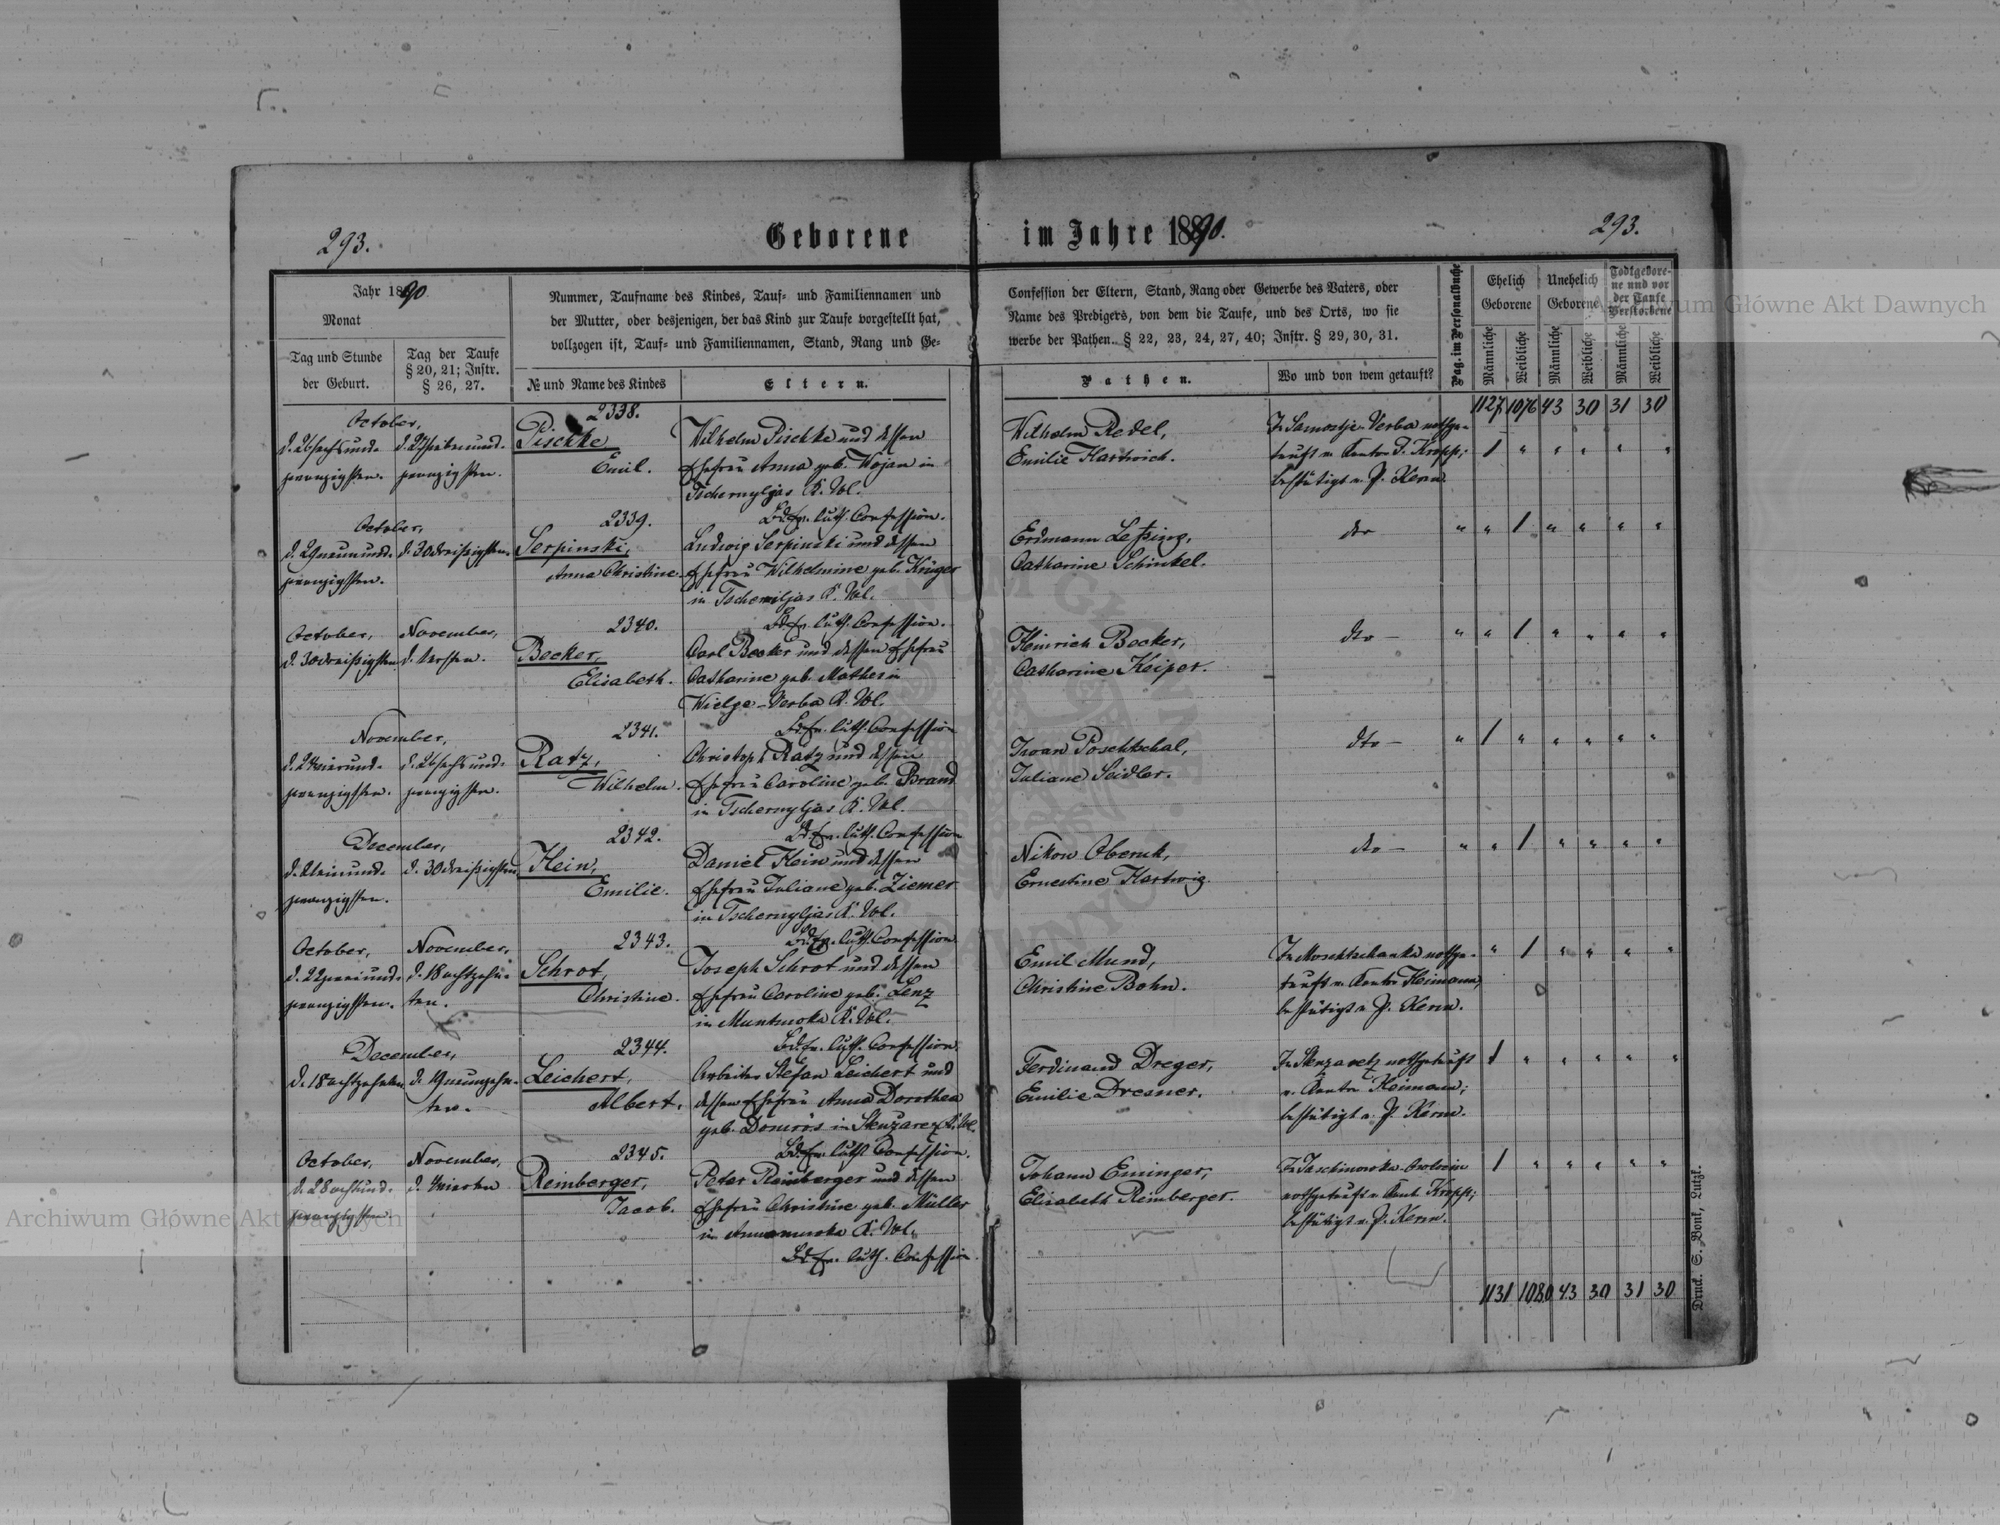 293.
Geborene im Jahre 1890.
293.
Jahr 1890
Monat
Tag und Stunde
der Geburt.
Tag der Taufe
§ 20, 21; Instr.
§ 26, 27.
Nummer, Taufname des Kindes, Tauf- und Familiennamen und
der Mutter, oder desjenigen, der das Kind zur Taufe vorgestellt hat,
vollzogen ist, Tauf- und Familiennamen, Stand, Rang und Ge-
№ und Name des Kindes
Eltern.
Confession der Eltern, Stand, Rang oder Gewerbe des Vaters, oder
Name des Predigers, von dem die Taufe, und des Orts, wo sie
werbe der Pathen. § 22, 23, 24, 27, 40; Instr. § 29, 30, 31.
Pathen.
Wo und von wem getauft?
Pag. im Personalbuche
Ehelich
Geborene
Unehelich
Geborene
Todtgebore-
ne und vor
der Taufe
Verstorbene
Männliche
Weibliche
Männliche
Weibliche
Männliche
Weibliche
1127 1076 43 30 31 30
October,
d. 26 sechsund-
zwanzigsten.
d. 27 siebenund-
zwanzigsten.
2338.
Pischke
Emil.
Wilhelm Pischke und dessen
Ehefrau Anna geb. Wojan in
Tschernyljas K. Wl.
Bd. Ev. luth. Confession.
Wilhelm Redel,
Emilie Hartwich.
In Samostje-Verba nothge-
tauft v. Kantor P. Kropp;
bestätigt v. P. Kern.
October,
d. 29 neunund-
zwanzigsten.
d. 30 dreißigsten.
2339.
Serpinski,
Anna Christine.
Ludwig Serpinski und dessen
Ehefrau Wilhelmine geb. Krüger
in Tscherniljas K. Wl.
Bd. Ev. luth. Confession.
Erdmann Leßing,
Catharine Schinkel.
dto
October,
d. 30 dreißigsten
November,
d. 1 ersten.
2340.
Becker,
Elisabeth.
Carl Becker und dessen Ehefrau
Catharine geb. Mathes in
Wielge-Verba K. Wl.
Bd. Ev. luth. Confession
Heinrich Becker,
Catharine Keiper.
dto —
November,
d. 22 zweiund-
zwanzigsten.
d. 26 sechsund-
zwanzigsten.
2341.
Ratz,
Wilhelm.
Christoph Ratz und dessen
Ehefrau Caroline geb. Brand
in Tschernyljas K. Wl.
Bd. Ev. luth. Confession
Iwan Poschtschal,
Juliane Seidler.
dto —
December,
zwanzigsten.
d. 30 dreißigsten
2342.
Hein,
Emilie.
Daniel Hein und dessen
Ehefrau Juliane geb. Ziemer
in Tschernyljas K. Wl.
Bd. Ev. luth. Confession
Nikon Oberuk,
Ernestine Hartwig.
dto —
October,
d. 22 zweiund-
zwanzigsten.
November,
d. 18 achtzehn-
ten.
2343.
Schrot,
Christine.
Joseph Schrot und dessen
Ehefrau Caroline geb. Lenz
in K. Wl.
Bd. Ev. luth. Confession
Emil Mund,
Christine Bohn.
In Moschtschanka nothge-
tauft v. Kantor Heimann,
bestätigt v. P. Kern.
December,
d. 18 achtzehnten
d. 19 neunzehn-
ten.
2344.
Leichert,
Albert.
Arbeiter Stefan Leichert und
dessen Ehefrau Anna Dorothea
geb. Domrös in K. Wl.
Bd. Ev. luth. Confession.
Ferdinand Dreger,
Emilie Dresner.
nothgetauft
v. Kantor Heimann;
bestätigt v. P. Kern.
October,
d. 28 achtund-
zwanzigsten
November,
d. 4 vierten
2345.
Reimberger,
Jacob.
Peter Reimberger und dessen
Ehefrau Christine geb. Müller
in K. Wl.
Bd. Ev. luth. Confession
Johann Eminger,
Elisabeth Reimberger.
nothgetauft v. Kant. Kropp;
bestätigt v. P. Kern.
1131 1080 43 30 31 30
Druck. S. Bonk, Lutzk.
Archiwum Główne Akt Dawnych
Archiwum Główne Akt Dawnych